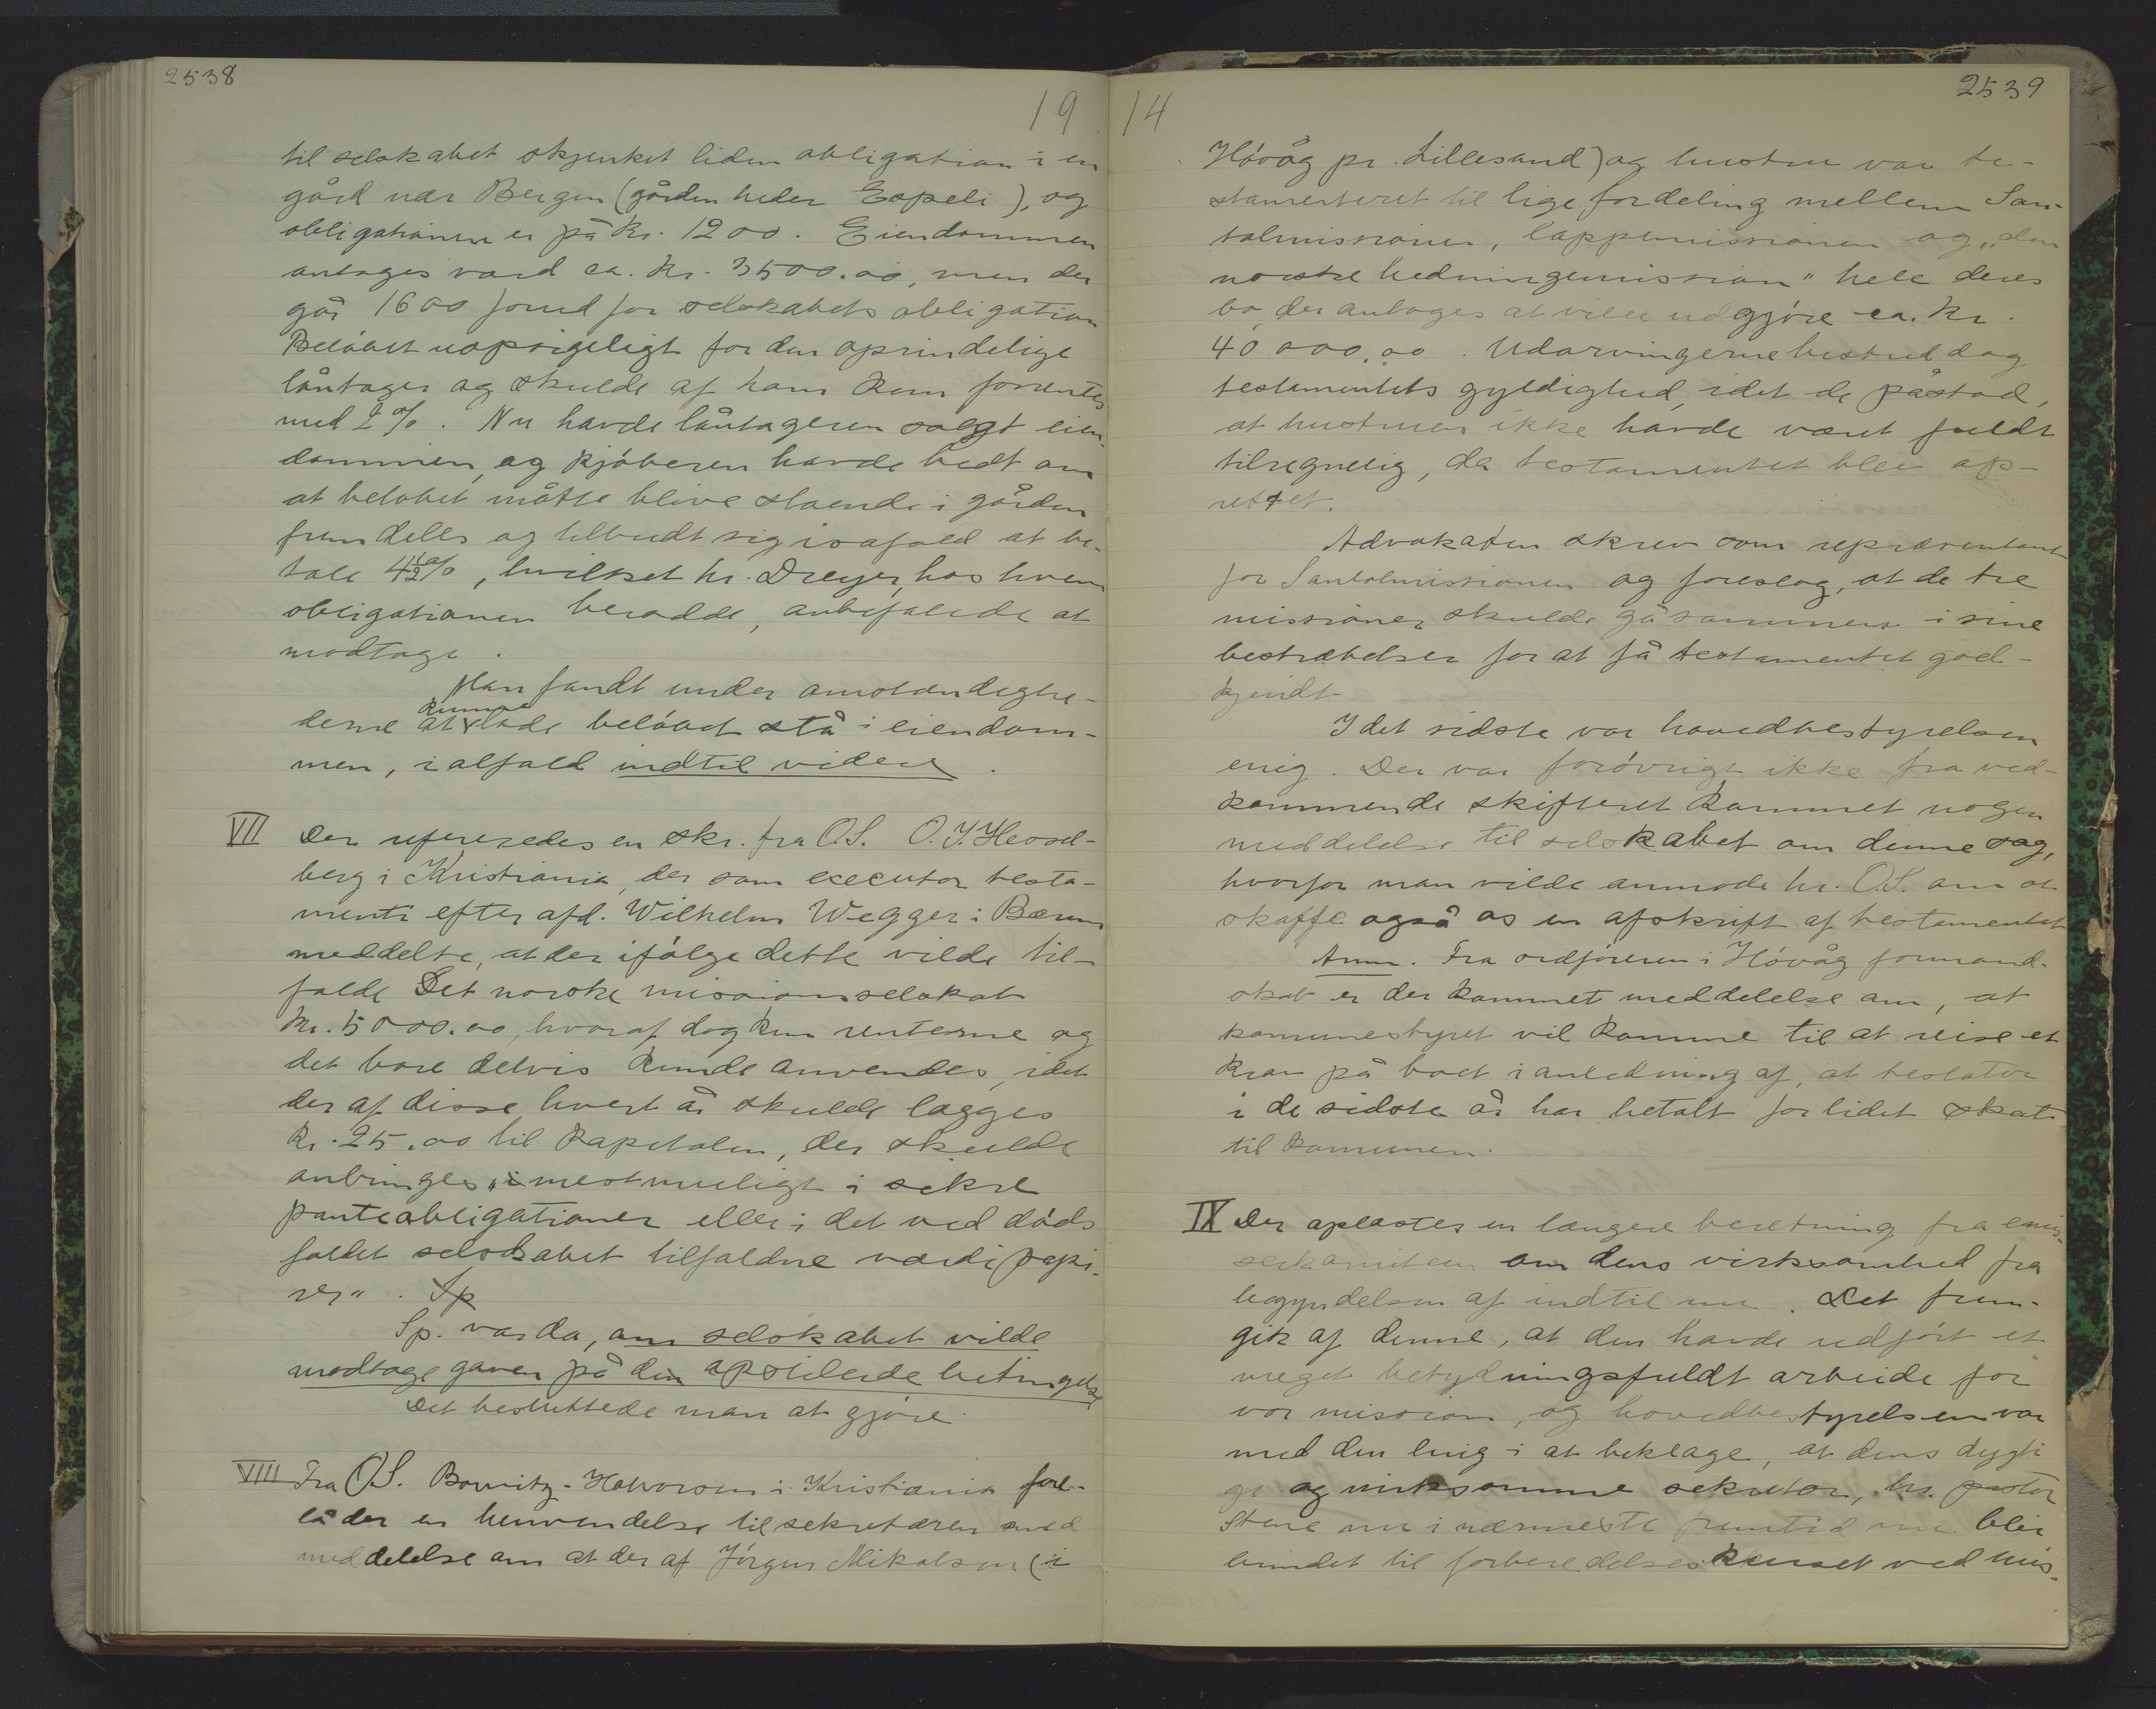 2538
19
til selskabet skjenket liden obligation i en
gård nær Bergen (gården heder Espeli), og
obligationen er på kr. 1200. Eiendommen
antages værd ca. kr. 3500.00, men der
går 1600 forud for selskabets obligation
Beløbet uopsigeligt for den oprindelige
låntager og skulde af ham kun forrentes
med 2%. Nu havde låntageren solgt eien-
dommen, og kjøberen havde bedt om
at beløbet måtte blive staende i gården
fremdeles og tilbudt sig isåfald at be-
tale 4½%, hvilket hr. Dreyer, hos hvem
obligationen beroede, anbefalede at
modtage.
Man fandt under omstændighe-
derne at kunne lade beløbet stå i eiendom-
men, ialfald indtil videre.
VII Der refereredes en skr. fra O.S. O.J. Hersel-
berg i Kristiania, der som executor testa-
menti efter afd. Wilhelm Wegger i Bærum
meddelte, at der ifølge dette vilde til-
falde Det norske missionsselskab
kr. 5000.00, hvoraf dog kun renterne og
det bare delvis kunde anvendes, idet
der af disse hvert år skulde lægges
kr. 25.00 til kapitalen, der skulde
anbringes „i mestmuligt i sikre
panteobligationer eller i det ved døds
faldet selskabet tilfaldne værdipapi-
rer“. Sp
Sp. var da, om selskabet vilde
modtage gaven på den opstillede betingelse
Det besluttede man at gjøre.
VIII Fra O.S. Borwitz-Halvorsen i Kristiania fore-
lå der en henvendelse til sekretæren med
meddelelse om at der af Jørgen Mikalsen (i
14
2539
Høvåg pr. Lillesand) og hustru var te-
stamenteret til lige fordeling mellem San-
talmissionen, lappemissionen og „den
norske hedningemission“ hele deres
bo, der antages at ville udgjøre ca. kr.
40 000,00. Udarvingerne bestred dog
testamentets gyldighed, idet de påstod,
at hustruen ikke havde været fuldt
tilregnelig, da testamentet blev op-
rettet.
Advokaten skrev som repræsentant
for Santalmissionen og foreslog, at de tre
missioner skulde gå sammen i sine
bestræbelser for at få testamentet god-
kjendt
I det sidste var hovedbestyrelsen
enig. Der var forøvrigt ikke fra ved-
kommende skifteret kommet nogen
meddelelse til selskabet om denne sag,
hvorfor man vilde anmode hr. O.S. om at
skaffe også os en afskrift af testamentet
Anm. Fra ordføreren i Høvåg formand-
skab er der kommet meddelelse om, at
komunestyret vil komme til at reise et
krav på boet i anledning af, at testator
i de sidste år har betalt for lidet skat
til komunen.
IX Der oplæstes en længere beretning fra emis-
særkomiteen om dens virksomhed fra
begyndelsen af indtil nu. Det frem-
gik af denne, at den havde udført et
meget betydningsfuldt arbeide for
vor mission, og hovedbestyrelsen var
med den enig i at beklage, at dens dygti
ge og virksomme sekretær, hr. pastor
Stene nu i nærmeste fremtid nu blir
bundet til forberedelseskurset ved mis-